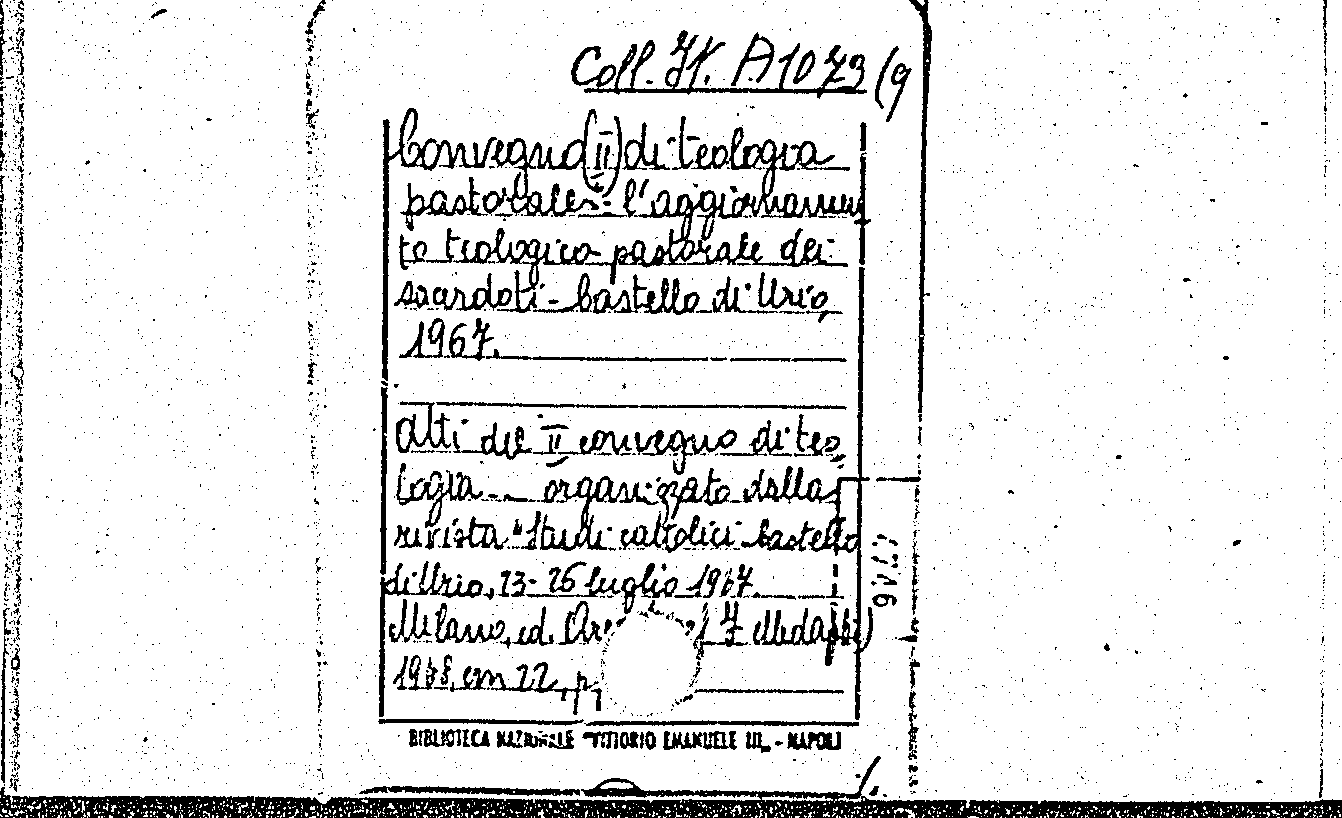 Coll. It. A 1073 (9
Convegno (II) di teologia
pastorale: l'aggiornamen
to teologico pastorale dei
sacerdoti - Castello di Urio,
1967.
Atti del II convegno di teo
logia - organizzato dalla
rivista "Studi cattolici - Castello
di Urio, 23-26 luglio 1967.
Milano, ed. Ares
1968, cm 22, p.
BIBLIOTECA NAZIONALE "VITTORIO EMANUELE III" - NAPOLI